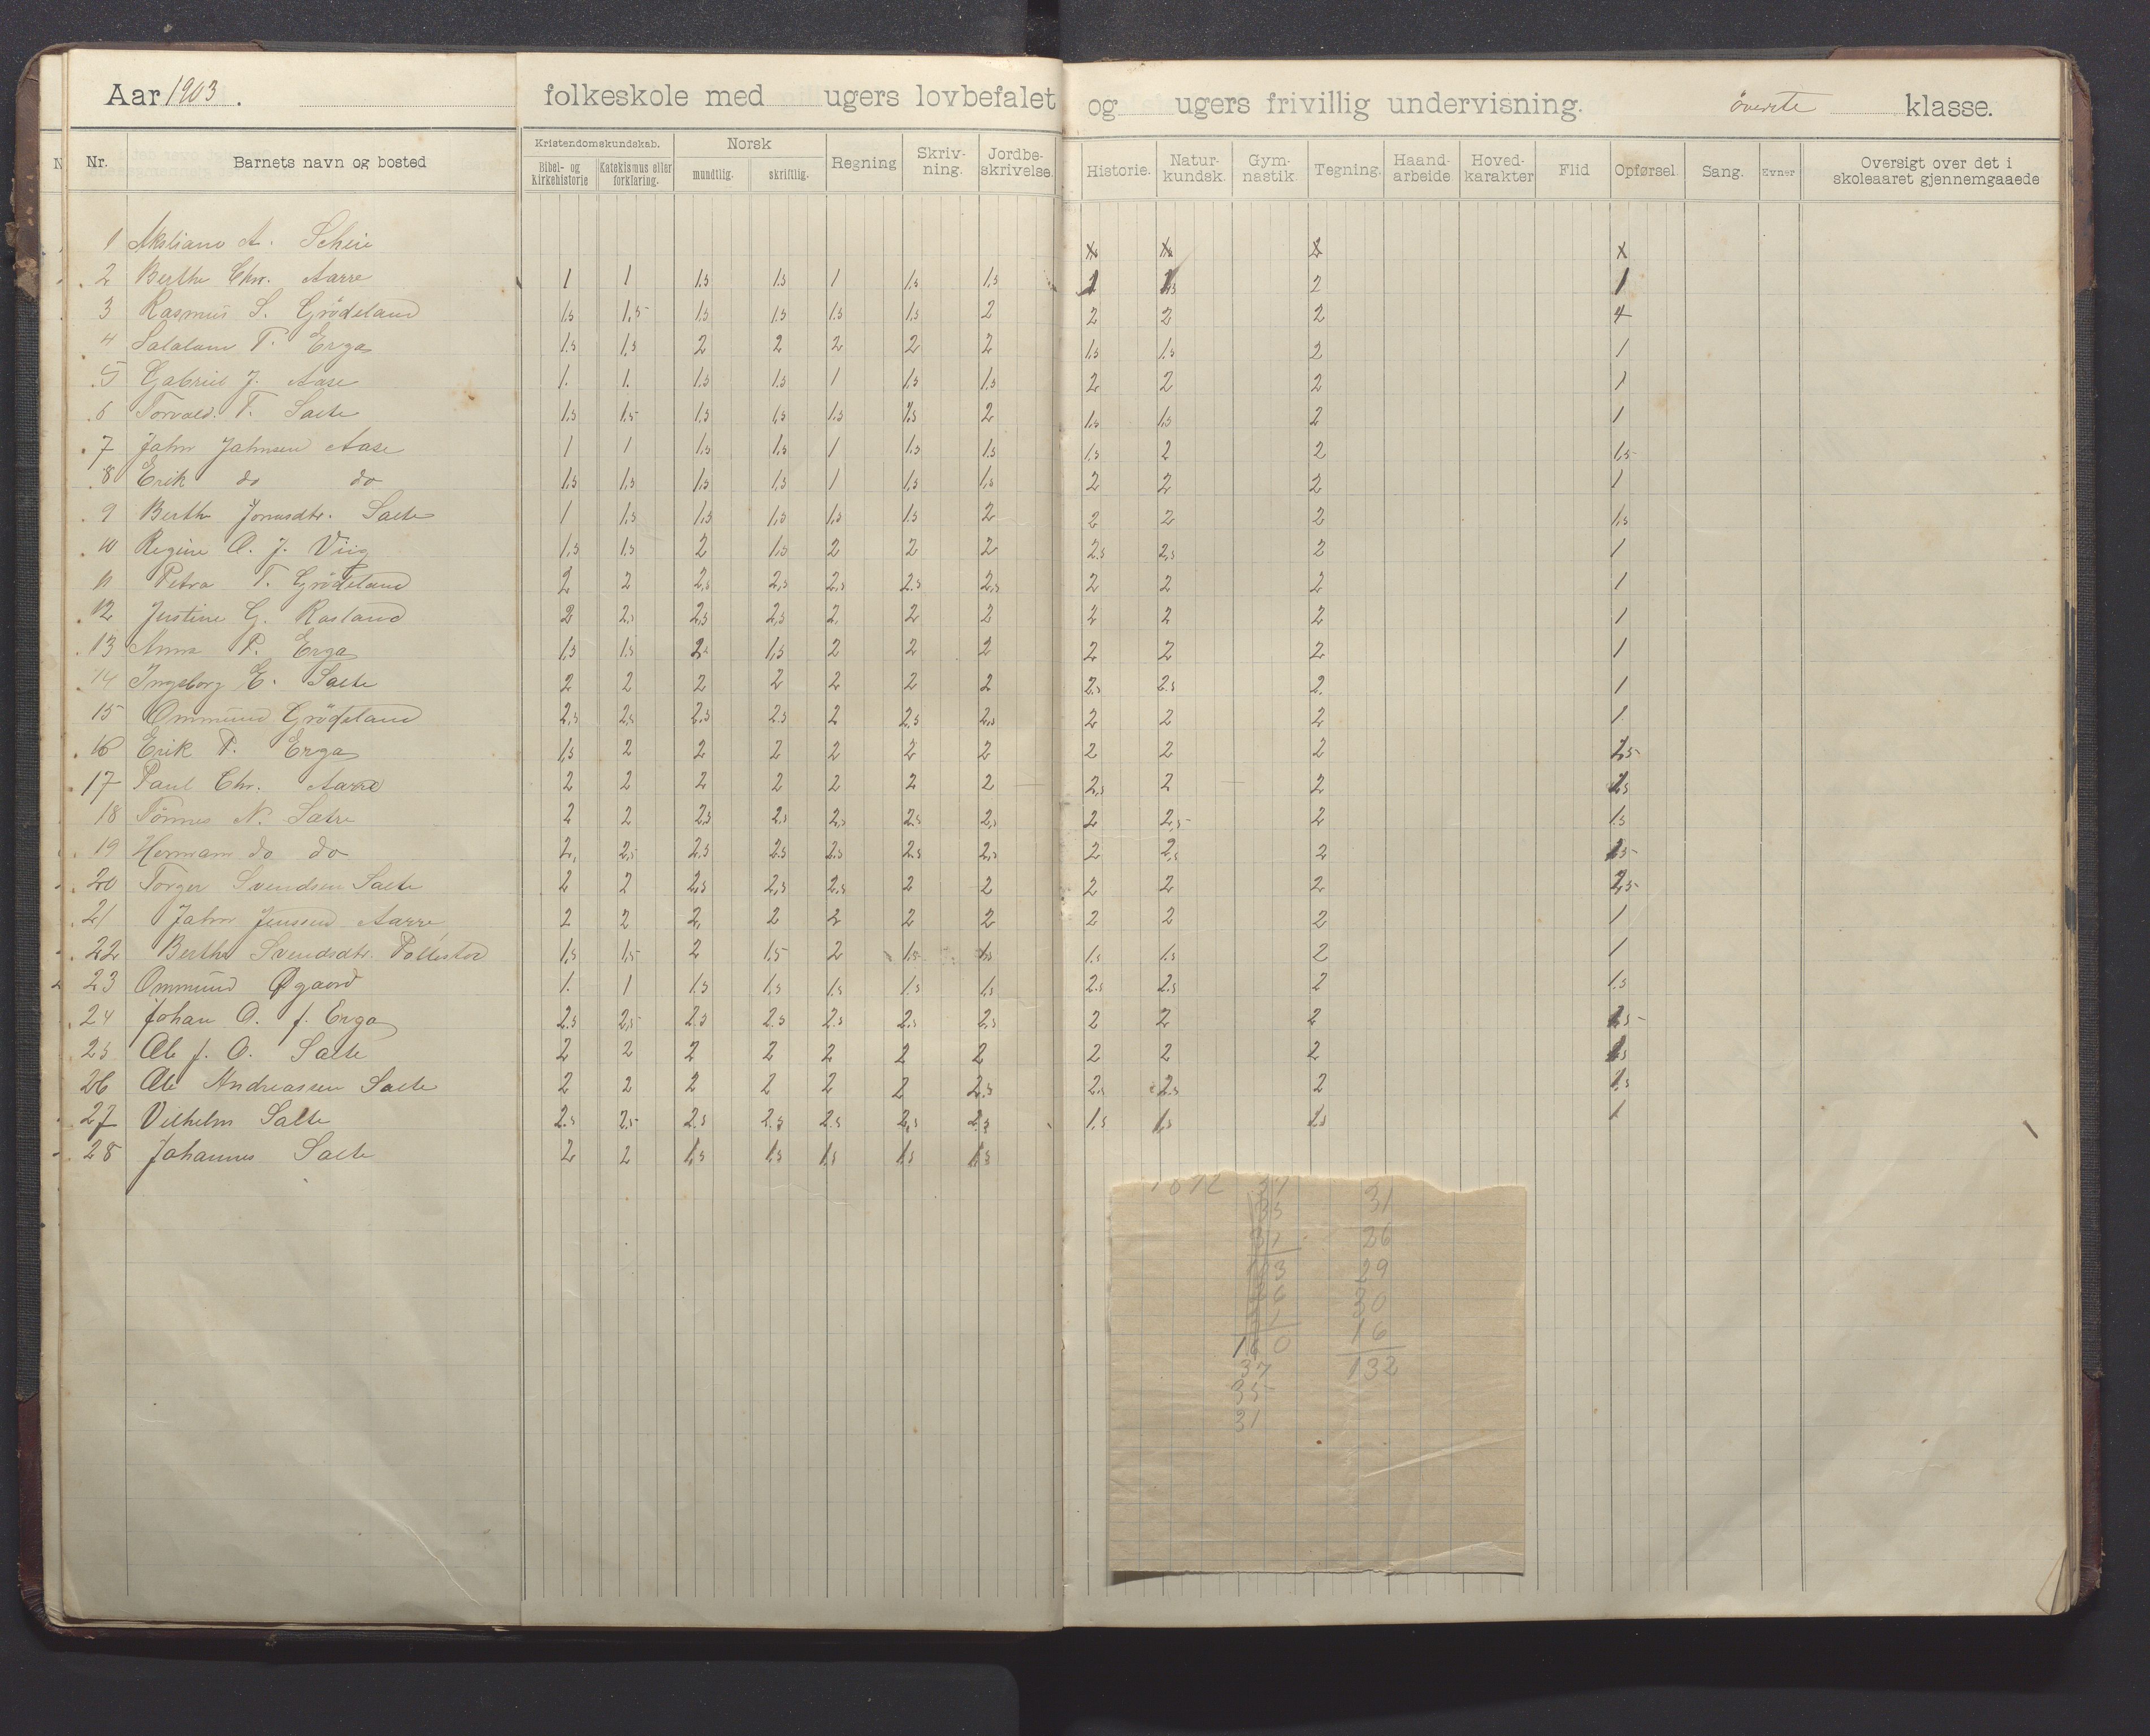 Aar 1903. folkeskole med ugers lovbefalet og ugers frivillig undervisning. överste klasse.
Nr. Barnets navn og bosted Kristendomskundskab. Bibel- og Kirkehistorie Katekismus eller forklaring. Norsk mundtlig. skriftlig. Regning Skriv-ning. Jordbe-skrivelse. Historie. Natur-kundsk. Gym-nastik. Tegning. Haand-arbeide. Hoved-karakter Flid Opførsel. Sang. Evner Oversigt over det i skoleaaret gjennemgaaede
1 A. Scheie x x x x
2 Berthe Chr. Aarre 1 1 1.5 1.5 1 1.5 1,5 1 1,5 2 1
3 Rasmus S. Grödeland 1.5 1,5 1.5 1.5 1.5 1.5 2 2 2 2 4
4 T. Erga 1.5 1,5 2 2 2 2 2 1,5 1.5 2 1
5 Gabriel J. Aase 1. 1. 1.5 1.5 1 1.5 1.5 2 2 2 1
6 Torvald T. Salte 1.5 1.5 1.5 1,5 1.5 1.5 2 1,5 1,5 2 1
7 Jahn Jahnsen Aase 1 1 1.5 1.5 1 1.5 1.5 1,5 2 2 1,5
8 Erik do do 1.5 1.5 1,5 1,5 1 1,5 1,5 2 2 2 1
9 Berthe Jonasdtr. Salte 1 1,5 1,5 1,5 1,5 1.5 2 2 2 2 1,5
10 Regine O. J. Viig 1,5 1.5 2 1,5 2 2 2 2.5 2,5 2 1
11 Petra T. Grödeland 2 2 2,5 2,5 2,5 2.5 2,5 2 2 2 1
12 Justine G. Rosland 2 2,5 2,5 2,5 2. 2 2 2 2 2 1
13 Anna P. Erga 1,5 1.5 2 1,5 2 2 2 2 2 2 1
14 Ingeborg E. Salte 2 2 2 2 2 2 2 2.5 2.5 2. 1
15 Ommund Grödeland 2,5 2,5 2.5 2.5 2 2.5 2,5 2 2 2 1.
16 Erik P. Erga 1,5 2 2 2 2 2 2 2 2 2 2,5
17 Paul Chr. Aarre 2 2 2 2 2 2 2 2,5 2 2 1,5
18 Tönnes N. Sætre 2 2 2.5 2.5 2,5 2.5 2,5 2 2,5 2 1.5
19 Herman do do 2, 2,5 2.5 2.5 2.5 2.5 2,5 2 2,5 2 1.5
20 Torger Svendsen Salte 2 2 2,5 2,5 2.5 2 2 2 2 2 2,5
21 Jahn Jenssen Aarre 2 2 2, 2 2 2 2 2 2 2 1
22 Berthe Svendsdtr. Pollestad 1,5 1,5 2 1.5 2 1.5 1,5 1.5 1.5 2 1
23 Ommund Øgaard 1. 1 1.5 1,5 1,5 1.5 1,5 2.5 2.5 2 1.5
24 Johan O. J. Erga 2.5 2,5 2.5 2.5 2.5 2.5 2,5 2 2 2 1.5
25 Ole J. O. Salte 2 2 2 2 2 2 2 2 2 2 1.5
26 Ole Andreassen Salte 2 2 2 2 2 2 2.5 2.5 2.5 2 1.5
27 Vilhelm Salte 2.5 2.5 2.5 2.5 2.5 2,5 2.5 1.5 1.5 1.5 1
28 Johannes Salte 2 2 1,5 1.5 1.5 1.5 1.5
37 31
35
31 26
29
30
0 16
37 132
35
31